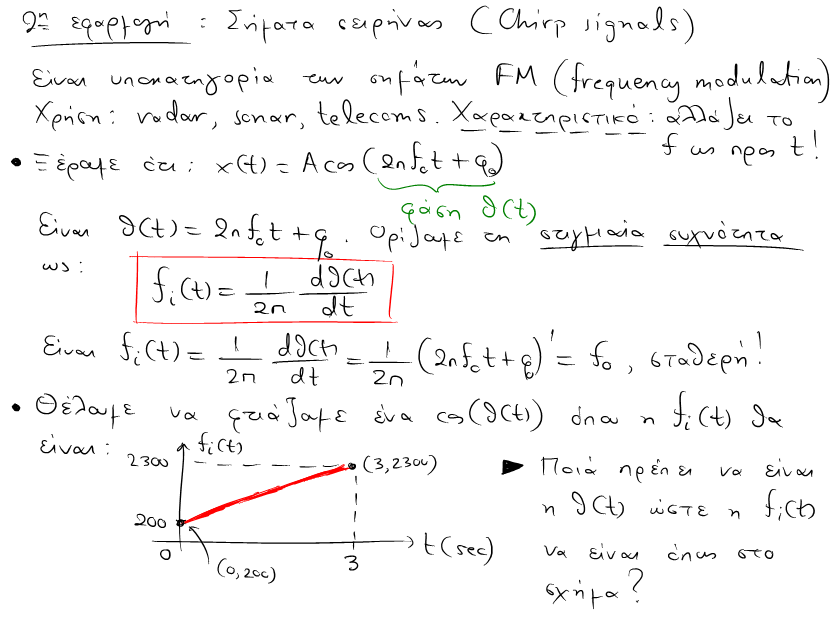 2η εφαρμογή : Σήματα σειρήνας (Chirp signals)
Είναι υποκατηγορία των σημάτων FM (frequency modulation)
Χρήση: radar, sonar, telecoms. Χαρακτηριστικό: αλλάζει το
f ως προς t!
• Ξέραμε ότι: x(t) = A cos(2πf₀t + φ₀)
φάση θ(t)
Είναι θ(t) = 2πf₀t + φ₀. Ορίζαμε τη στιγμιαία συχνότητα
ως:
f_i(t) = 1/2π dθ(t)/dt
Είναι f_i(t) = 1/2π dθ(t)/dt = 1/2π (2πf₀t + φ₀)' = f₀, σταθερή!
• Θέλαμε να φτιάξαμε ένα cos(θ(t)) όπου η f_i(t) θα
είναι:
f_i(t)
2300
(3, 2300)
200
0
(0, 200)
3
t(sec)
► Ποιά πρέπει να είναι
η θ(t) ώστε η f_i(t)
να είναι όπως στο
σχήμα?